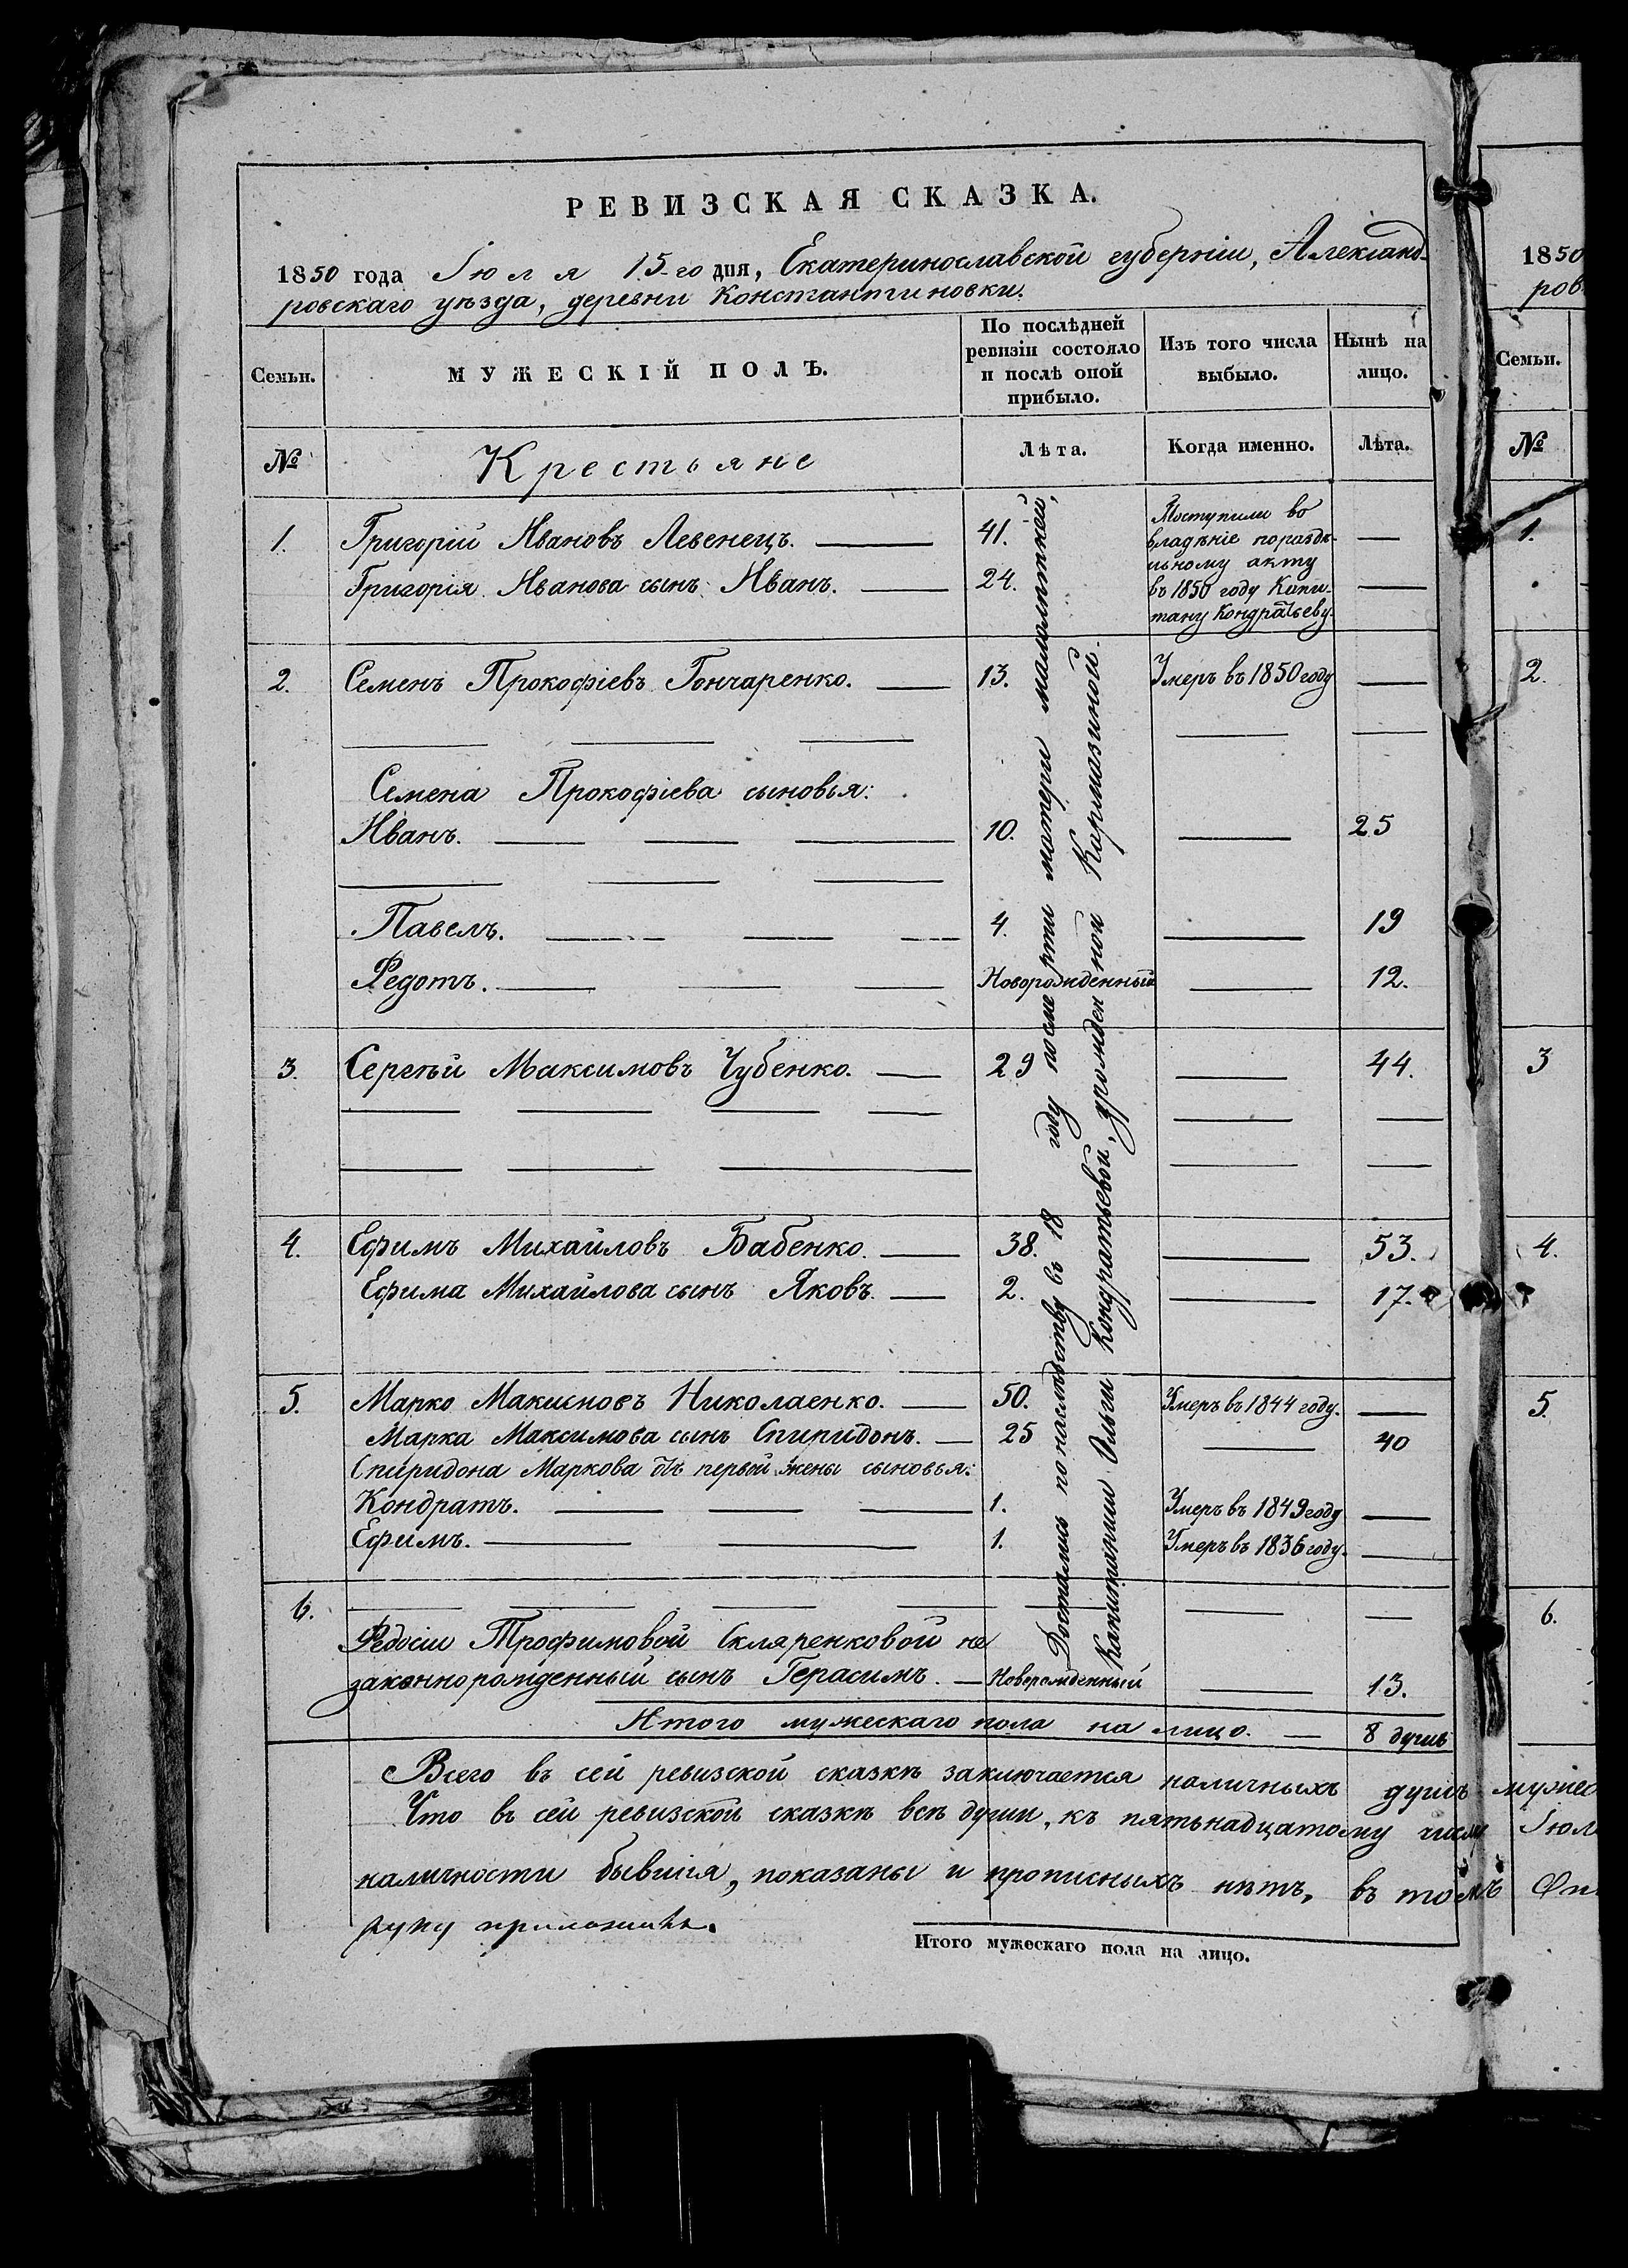 РЕВИЗСКАЯ СКАЗКА.
1850 года Іюля 15-го дня, Екатеринославской губерніи, Александ-
ровскаго уѣзда, деревни Константиновки.
Семьи.
МУЖЕСКІЙ ПОЛЪ.
По послѣдней
ревизіи состояло
и послѣ оной
прибыло.
Изъ того числа
выбыло.
Нынѣ на
лицо.
№
Крестьяне
Лѣта.
Когда именно.
Лѣта.
1. Григорій Ивановъ Левенецъ. 41.
Григорія Иванова сынъ Иванъ. 24.
Поступили во
владѣніе по раздѣ-
льному акту
въ 1850 году Капи-
тану Кондратьеву.
2. Семенъ Прокофіевъ Гончаренко. 13. Умеръ въ 1850 году
Семена Прокофіева сыновья:
Иванъ. 10. 25
Павелъ. 4. 19
Федотъ. Новорожденный 12.
3. Сергѣй Максимовъ Чубенко. 29 44.
4. Ефимъ Михайловъ Бабенко. 38. 53.
Ефима Михайлова сынъ Яковъ. 2. 17.
5. Марко Максимовъ Николаенко. 50. Умеръ въ 1844 году.
Марка Максимова сынъ Спиридонъ. 25 40
Спиридона Маркова отъ первой жены сыновья:
Кондратъ. 1. Умеръ въ 1849 году
Ефимъ. 1. Умеръ въ 1836 году.
6.
Федосіи Трофимовой Скляренковой не
законнорожденный сынъ Герасимъ. Новорожденный 13.
Достались по наслѣдству въ 18 году после смерти матери малолѣтней,
Капитанши Ольги Кондратьевой, урожденной Кармазиной.
Итого мужескаго пола на лицо. 8 душъ
Всего въ сей ревизской сказкѣ заключается наличныхъ душъ мужес
Что въ сей ревизской сказкѣ всѣ души, къ пятьнадцатому числу Іюл
наличности бывшія, показаны и прописныхъ нѣтъ, въ томъ
руку приложилъ.
Итого мужескаго пола на лицо.
1850
ров
Семьи.
№
1.
2.
3
4.
5.
6.